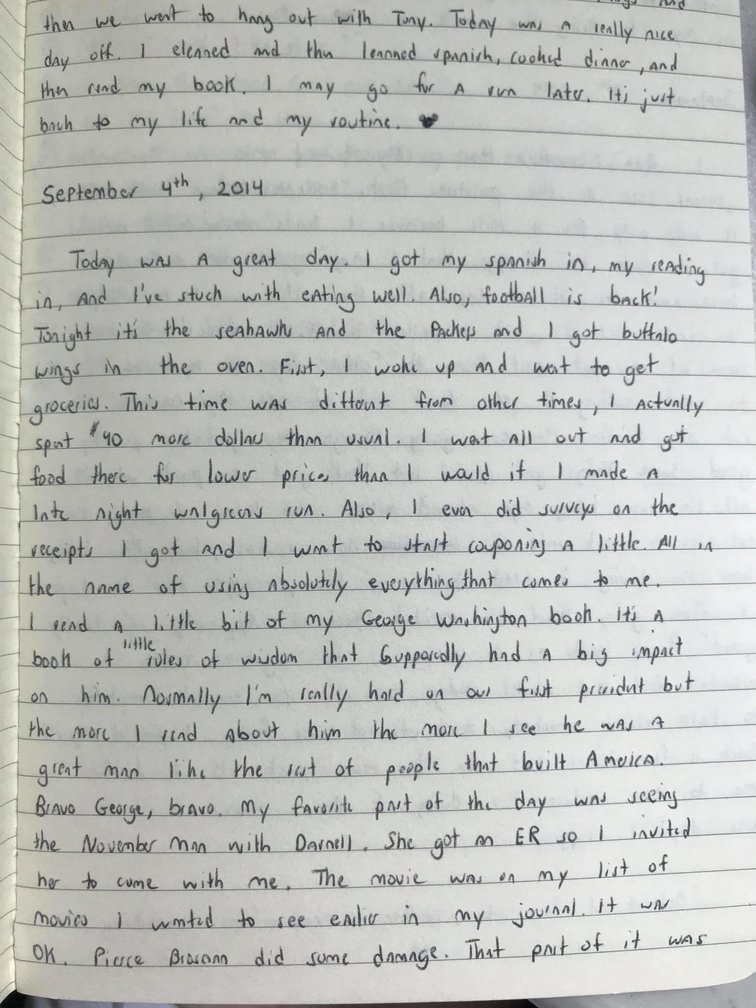 then we went to hang out with Tony. Today was a really nice
day off. I cleaned and then learned spanish, cooked dinner, and
then read my book. I may go for a run later. It's just
back to my life and my routine.
September 4th, 2014
Today was a great day. I got my spanish in, my reading
in, and I've stuck with eating well. Also, football is back!
Tonight it's the seahawks and the Packers and I got buffalo
wings in the oven. First, I woke up and went to get
groceries. This time was different from other times, I actually
spent $40 more dollars than usual. I went all out and got
food there for lower prices than I would if I made a
late night walgreens run. Also, I even did surveys on the
receipts I got and I want to start couponing a little. All in
the name of using absolutely everything that comes to me.
I read a little bit of my George Washington book. It's a
book of little rules of wisdom that supposedly had a big impact
on him. Normally I'm really hard on our first president but
the more I read about him the more I see he was a
great man like the rest of people that built America.
Bravo George, bravo. My favorite part of the day was seeing
the November Man with Darnell. She got an ER so I invited
her to come with me. The movie was on my list of
movies I wanted to see earlier in my journal. It was
OK. Pierce Brosnan did some damage. That part of it was